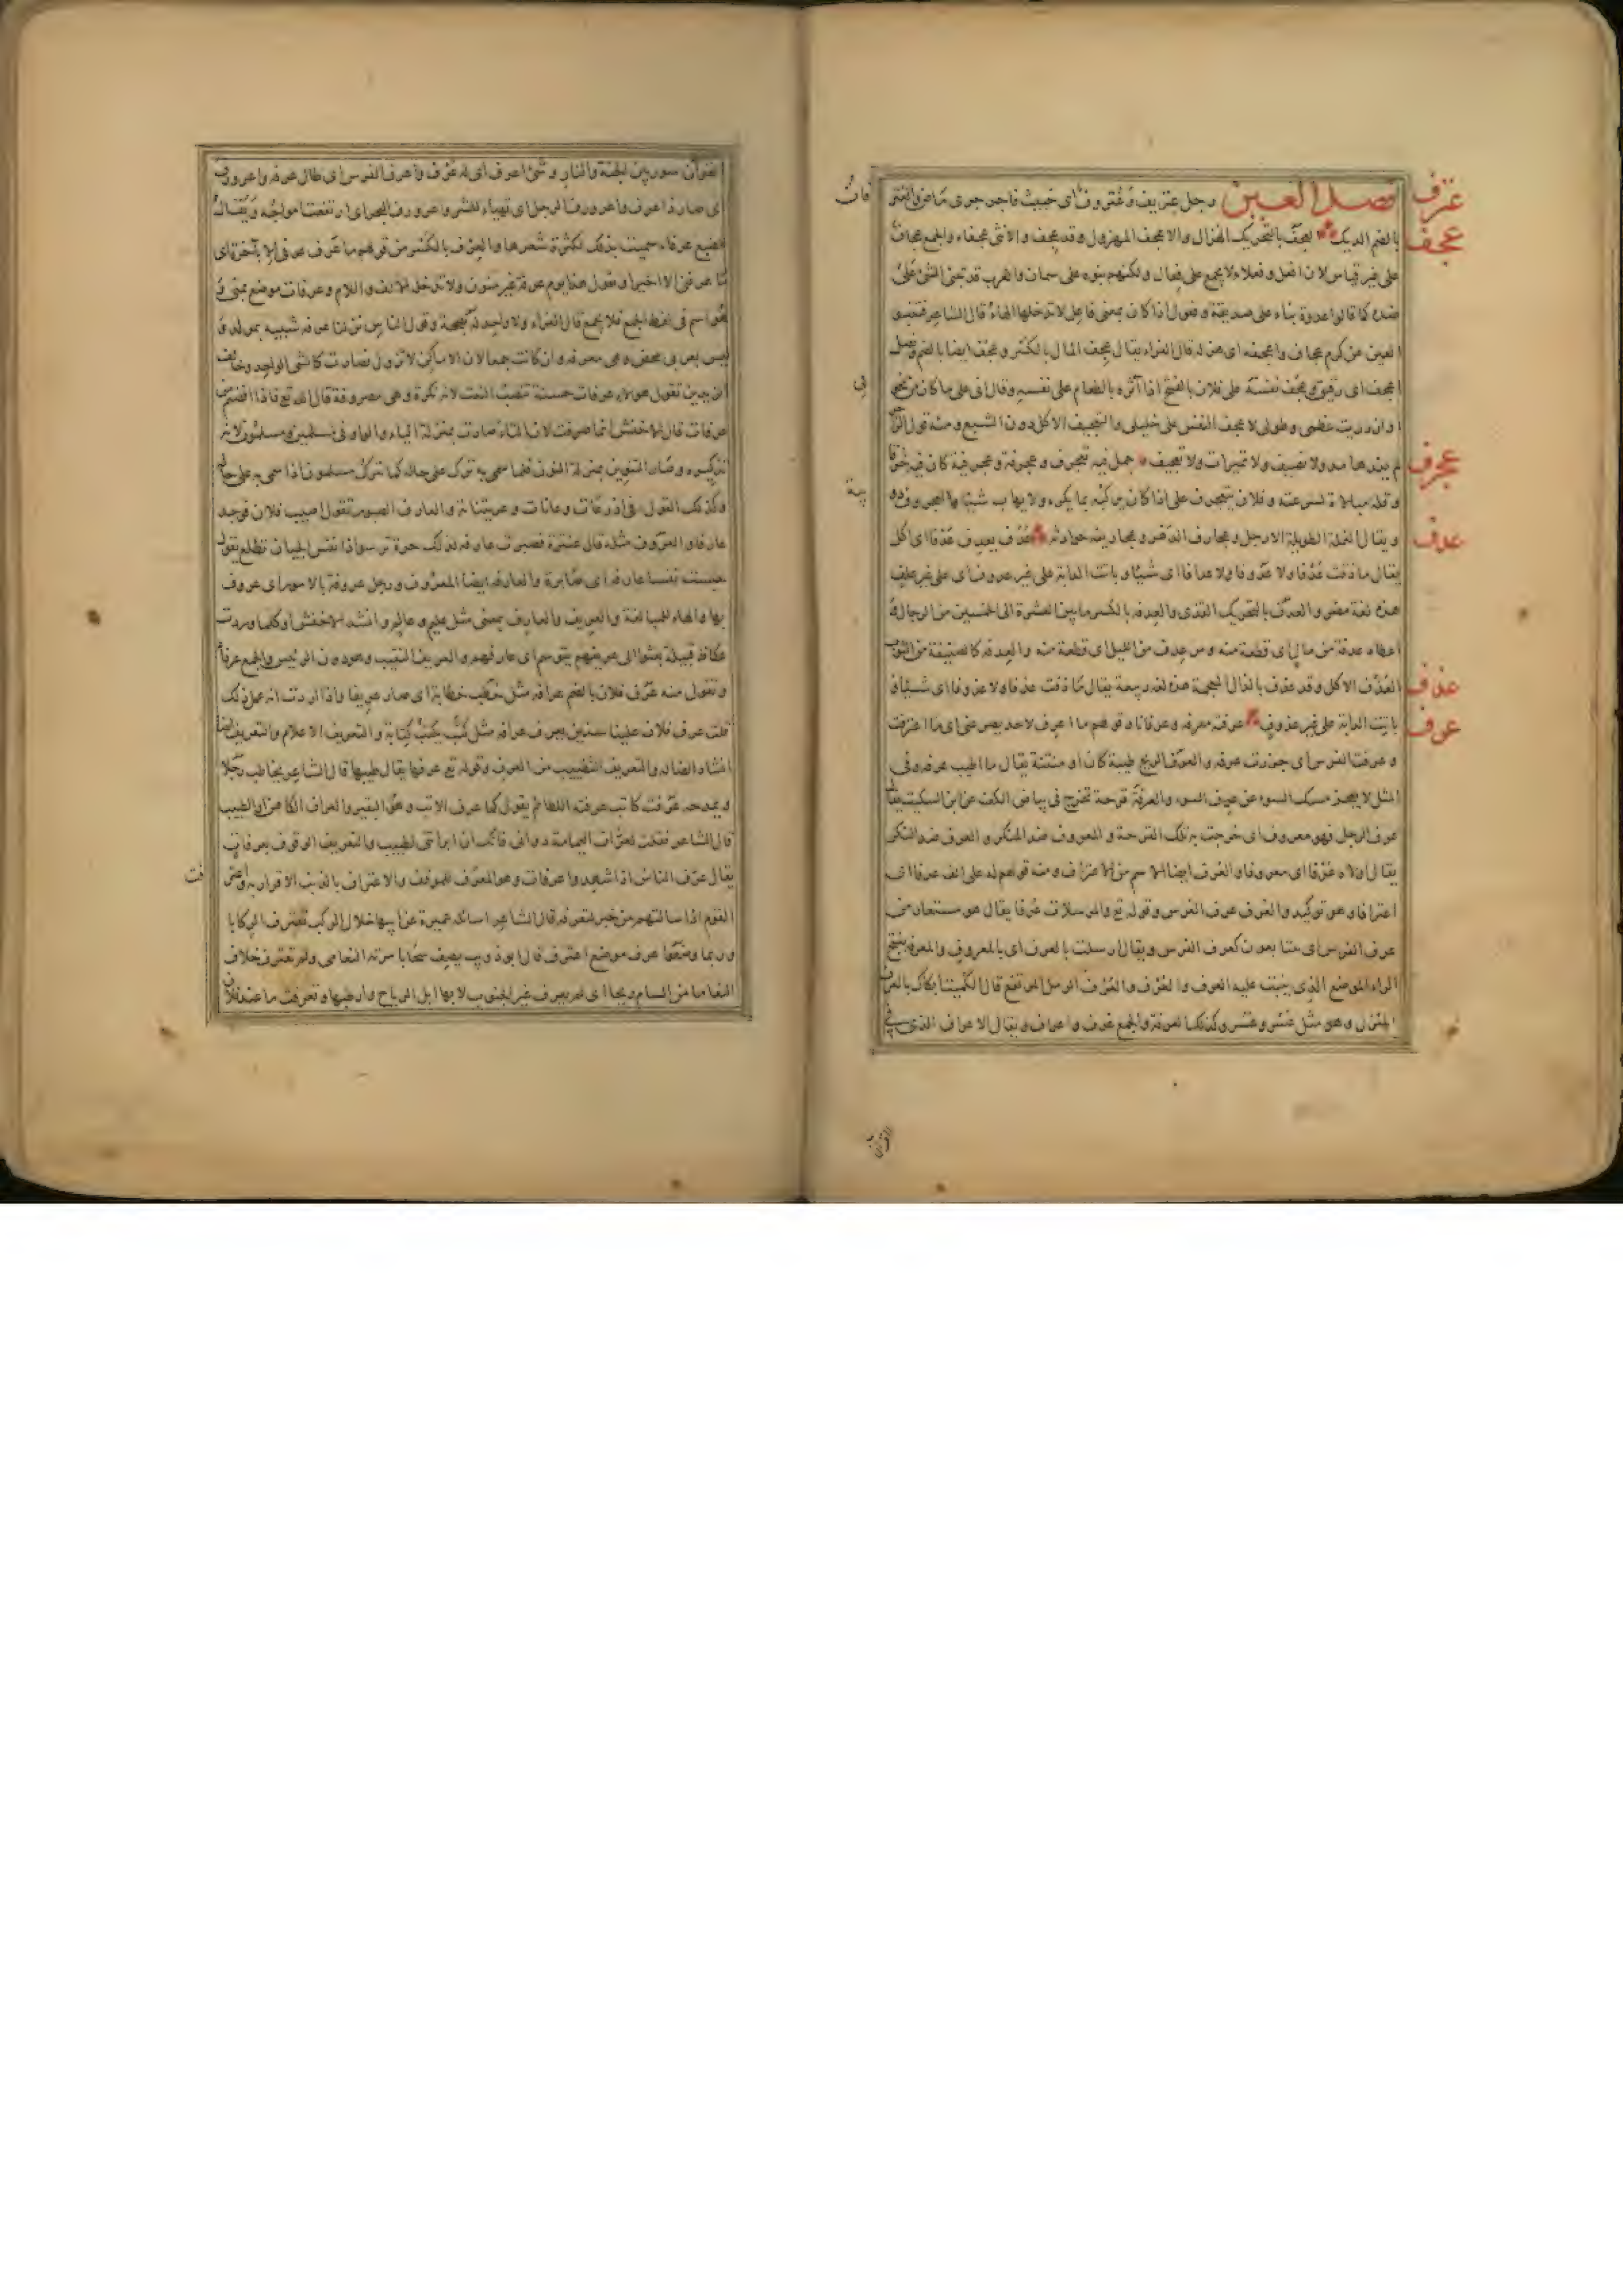 عترف فصل العين رجل عتريف وعتروف أى خبيث فاجر جرى ماض والعتر فان
عجف بالضم الديك العجف بالتحريك الهزال والاعجف المهزول وقد عجف والانثى عجفاء والجمع عجاف
على غير قياس لان افعل وفعلاء لا يجمع على فعال ولكنهم بنوه على سمان والعرب قد تبنى الشئ على
ضده كما قالوا عدوة بناء على صديقة وفعول اذا كان بمعنى فاعل لا تدخلها الهاء قال الشاعر
العين من كرم عجاف واعجفه اى هزله قال الفراء يقال عجف المال بالكسر وعجف ايضا بالضم ونصل
اعجف اى رقيق وعجف نفسه على فلان بالفتح اذا آثره بالطعام على نفسه وقال انى على ما كان من
وان دريت عظمى وطولى لا عجف النفس على خليلى والتعجيف الاكل دون الشبع ومنه قول
عجرف لم يغذها مد ولا نصيف ولا تميرات ولا تعجيف جمل فيه تعجرف وعجرفة وعجرفية كان فيه خرقا
وقلة مبالاة لسرعته وفلان يتعجرف على اذا كان يركبه بما يكره ولا يهاب شيئا والعجروف دويبة
عدف ويقال النملة الطويلة الارجل وعجارف الدهر وعجاريفه حوادثه عدف يعدف عدفا اى اكل
يقال ما ذقت عدفا ولا عدوفا ولا عدافا اى شيئا وباتت الدابة على غير عدوف اى على غير علف
هذه لغة مضر والعدف بالتحريك القذى والعدفة بالكسر ما بين العشرة الى الخمسين من الرجال
اعطاه عدفة من مال اى قطعة منه ومر عدف من الليل اى قطعة منه والعدفة كالصنيفة من الثوب
عذف العذف الاكل وقد عذف بالذال المعجمة هذه لغة ربيعة يقال ما ذقت عذفا ولا عذوفا اى شيئا
عرف باتت الدابة على غير عذوف عرفته معرفة وعرفانا وقولهم ما اعرف لاحد يصرعنى اى ما اعترفت
وعرفت الفرس اى جززت عرفه والعرف الريح طيبة كان او منتنة يقال ما اطيب عرفه وفى
المثل لا يعجز مسك السوء عن عرف السوء والعرفة قرحة تخرج فى بياض الكف عن ابن السكيت يقال
عرف الرجل فهو معروف اى خرجت به تلك القرحة والمعروف ضد المنكر والعرف ضد النكر
يقال اولاه عرفا اى معروفا والعرف ايضا الاسم من الاعتراف ومنه قولهم له على الف عرفا اى
اعترافا وهو توكيد والعرف عرف الفرس وقوله تع والمرسلات عرفا يقال هو مستعار من
عرف الفرس اى يتتابعون كعرف الفرس ويقال ارسلت بالعرف اى بالمعروف والمعرفة بفتح
الراء الموضع الذى ينبت عليه العرف والعرف والعرف الرمل المرتفع قال الكميت ابكاك بالعرف
المنزل وهو مثل عسر وعسر وكذلك العرفة والجمع عرف واعراف ويقال الاعراف الذى فى
القرآن
القرآن سور بين الجنة والنار وشئ اعرف اى له عرف واعرف الفرس اى طال عرفه واعرورف
اى صار ذا عرف واعرورف الرجل اى تهياء للشر واعرورف البحر اى ارتفعت امواجه ويقال
للضبع عرفاء سميت بذلك لكثرة شعرها والعرف بالكسر من قولهم ما عرف عرفى الا بآخرة اى
ما عرفنى الا اخيرا وتقول هذا يوم عرفة غير منون ولا تدخل الالف واللام وعرفات موضع بمنى و
هو اسم فى لفظ الجمع فلا يجمع قال الفراء ولا واحد له بصحة وقول الناس نزلنا عرفة شبيه بمولد و
ليس بعربى محض وهى معرفة وان كانت جمعا لان الاماكن لا تزول فصارت كالشئ الواحد وخالف
الزيدين تقول هولاء عرفات حسنة تنصب النعت لانه نكرة وهى مصروفة قال الله تع فاذا افضتم من
عرفات قال الاخفش انما صرفت لان التاء صارت بمنزلة الياء والواو فى مسلمين ومسلمون لانه
تذكيره وصار التنوين بمنزلة النون فلما سمى به ترك على حاله كما ترك مسلمون اذا سمى به على حاله
وكذلك القول فى اذرعات وعانات وعريتنات والعارف الصبور تقول اصيب فلان فوجد
عارفا والعروف مثله قال عنترة فصبرت عارفة لذلك حرة ترسو اذا نفس الجبان تطلع يقول
حبست نفسا عارفة اى صابرة والعارفة ايضا المعروف ورجل عروفة بالامور اى عروف
بها والهاء للمبالغة والعريف والعارف بمعنى مثل عليم وعالم وانشد الاخفش اوكلما وردت
عكاظ قبيلة بعثوا الى عريفهم يتوسم اى عارفهم والعريف النقيب وهو دون الرئيس والجمع عرفاء
وتقول منه عرف فلان بالضم عرافة مثل خطب خطابة اى صار عريفا واذا اردت انه عمل ذلك
قلت عرف فلان علينا سنين يعرف عرافة مثل كتب يكتب كتابة والتعريف الاعلام والتعريف ايضا
انشاد الضالة والتعريف التطييب من العرف وقوله تع عرفها يقال طيبها قال الشاعر يخاطب رجلا
ويمدحه عرفت كاتب عرفته اللطائم يقول كما عرف الاتب وهو البقير والعراف الكاهن والطبيب
قال الشاعر فقلت لعراف اليمامة داونى فانك ان ابراتنى لطبيب والتعريف الوقوف بعرفات
يقال عرف الناس اذا شهدوا عرفات وهو المعرف للموقف والاعتراف بالذنب الاقرار به واعترفت
القوم اذا سالتهم من خبر لتعرفه قال الشاعر اسائلة عميرة عن ابيها خلال الركب تعترف الركابا
وربما وضعوا عرف موضع اعترف قال ابو ذويب يصف سحابا مرته النعامى ولم يعترف خلاف
النعامى من الشام ريحا اى لم يعرف غير الجنوب لانها ابل الرياح وارطبها وتعرفت ما عند فلان